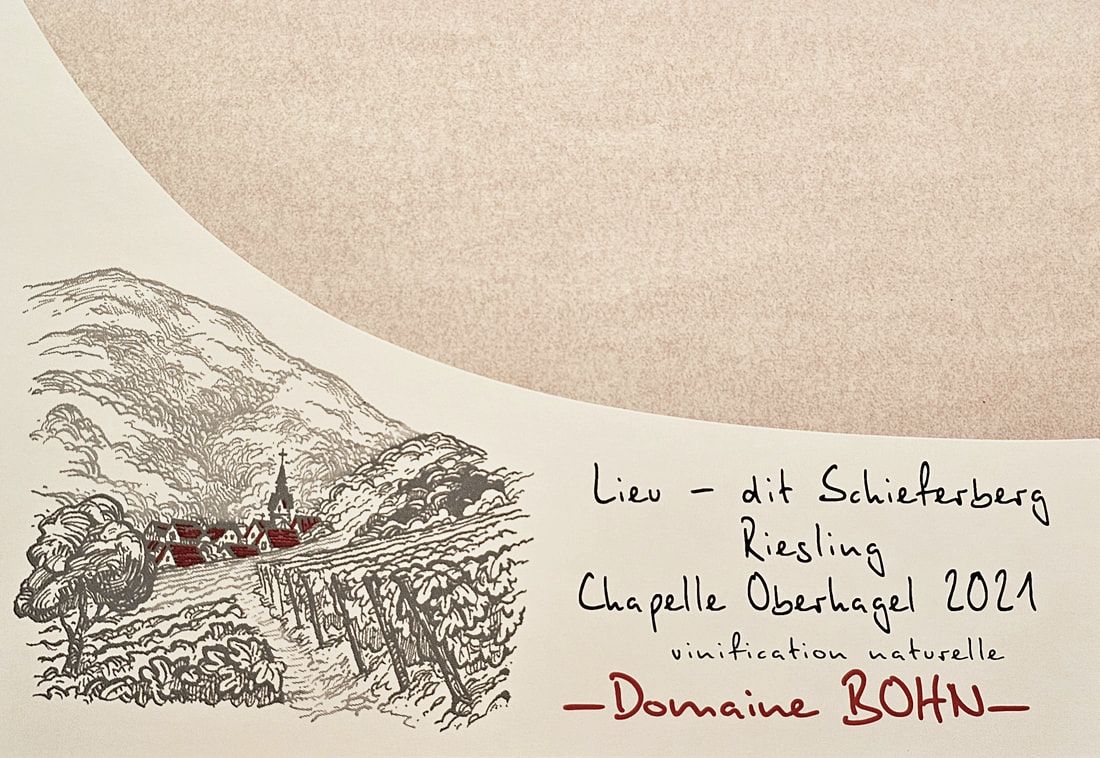 Lieu - dit Schieferberg
Riesling
Chapelle Oberhagel 2021
vinification naturelle
—Domaine BOHN—